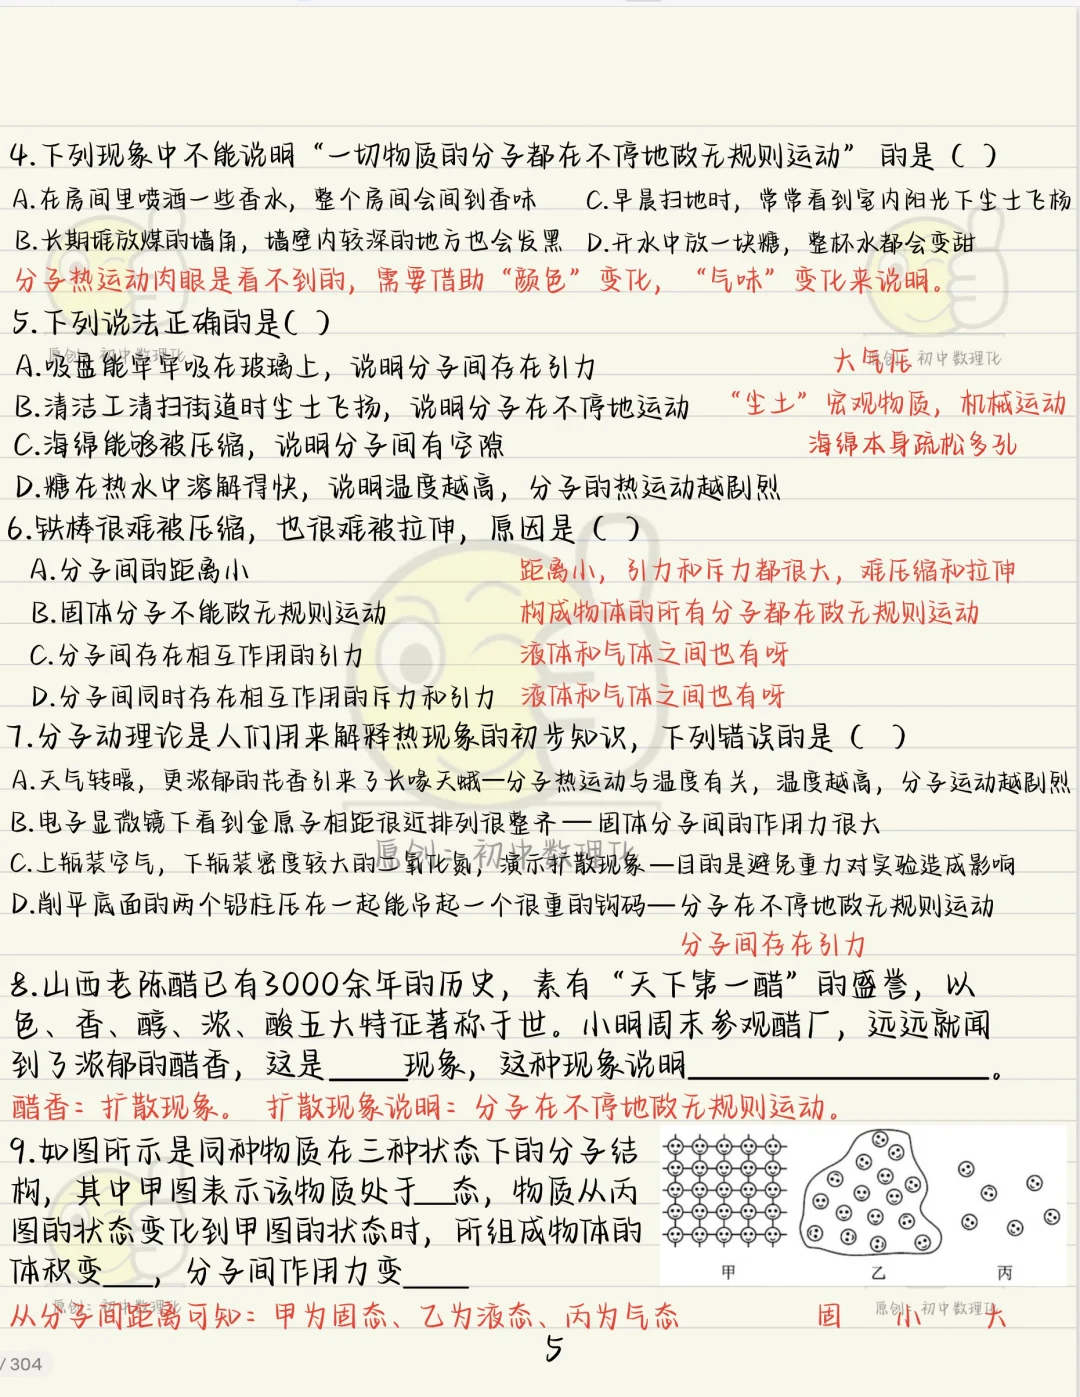 4.下列现象中不能说明“一切物质的分子都在不停地做无规则运动” 的是（ ）
A.在房间里喷洒一些香水，整个房间会闻到香味 C.早晨扫地时，常常看到室内阳光下尘土飞扬
B.长期堆放煤的墙角，墙壁内较深的地方也会发黑 D.开水中放一块糖，整杯水都会变甜
分子热运动肉眼是看不到的，需要借助“颜色”变化，“气味”变化来说明。
5.下列说法正确的是( )
A.吸盘能牢牢吸在玻璃上，说明分子间存在引力 大气压
原创：初中数理化 原创：初中数理化
B.清洁工清扫街道时尘土飞扬，说明分子在不停地运动 “尘土”宏观物质，机械运动
C.海绵能够被压缩，说明分子间有空隙 海绵本身疏松多孔
D.糖在热水中溶解得快，说明温度越高，分子的热运动越剧烈
6.铁棒很难被压缩，也很难被拉伸，原因是（ ）
A.分子间的距离小 距离小，引力和斥力都很大，难压缩和拉伸
B.固体分子不能做无规则运动 构成物体的所有分子都在做无规则运动
C.分子间存在相互作用的引力 液体和气体之间也有呀
D.分子间同时存在相互作用的斥力和引力 液体和气体之间也有呀
7.分子动理论是人们用来解释热现象的初步知识，下列错误的是（ ）
A.天气转暖，更浓郁的花香引来了长喙天蛾—分子热运动与温度有关，温度越高，分子运动越剧烈
B.电子显微镜下看到金原子相距很近排列很整齐—固体分子间的作用力很大
原创：初中数理化
C.上瓶装空气，下瓶装密度较大的二氧化氮，演示扩散现象—目的是避免重力对实验造成影响
D.削平底面的两个铅柱压在一起能吊起一个很重的钩码—分子在不停地做无规则运动
分子间存在引力
8.山西老陈醋已有3000余年的历史，素有“天下第一醋”的盛誉，以
色、香、醇、浓、酸五大特征著称于世。小明周末参观醋厂，远远就闻
到了浓郁的醋香，这是____现象，这种现象说明________________。
醋香：扩散现象。 扩散现象说明：分子在不停地做无规则运动。
9.如图所示是同种物质在三种状态下的分子结
构，其中甲图表示该物质处于__态，物质从丙
图的状态变化到甲图的状态时，所组成物体的
体积变___，分子间作用力变____
甲 乙 丙
从分子间距离可知：甲为固态、乙为液态、丙为气态 固 小 大
原创：初中数理化 原创：初中数理化
5
/304